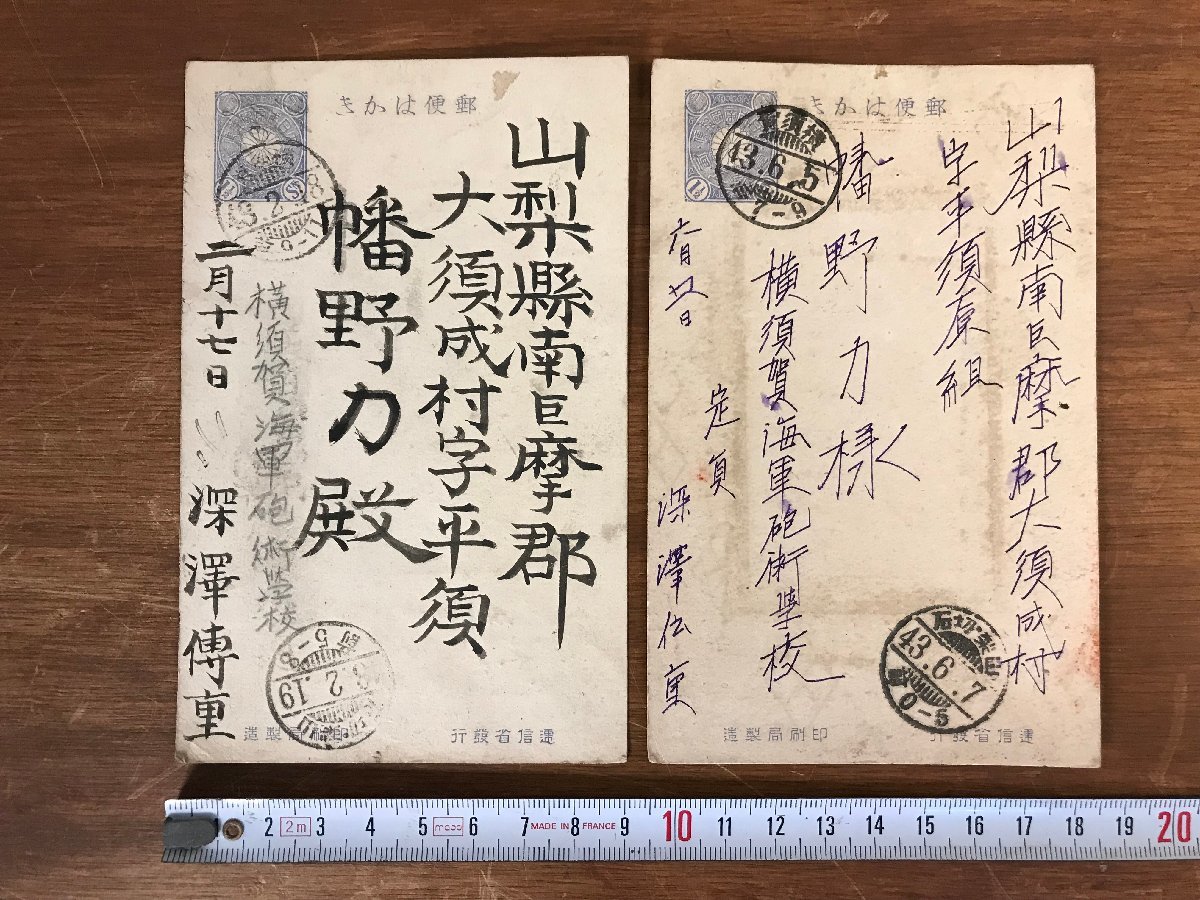 郵便はかき
山梨縣南巨摩郡
大須成村字平須
幡野力殿
横須賀海軍砲術学校
二月十七日
深澤傳重
43.2.18
3.2.19
5-8
遞信省發行
印刷局製造
郵便はかき
山梨縣南巨摩郡大須成村
字平須原組
幡野力様
横須賀海軍砲術學校
六月
定員
深澤伝重
横須賀
43.6.5
7-9
山梨切石
43.6.7
0-5
遞信省發行
印刷局製造
2 2m 3 4 5 6 7 MADE IN FRANCE 8 9 10 11 12 13 14 15 16 17 18 19 20